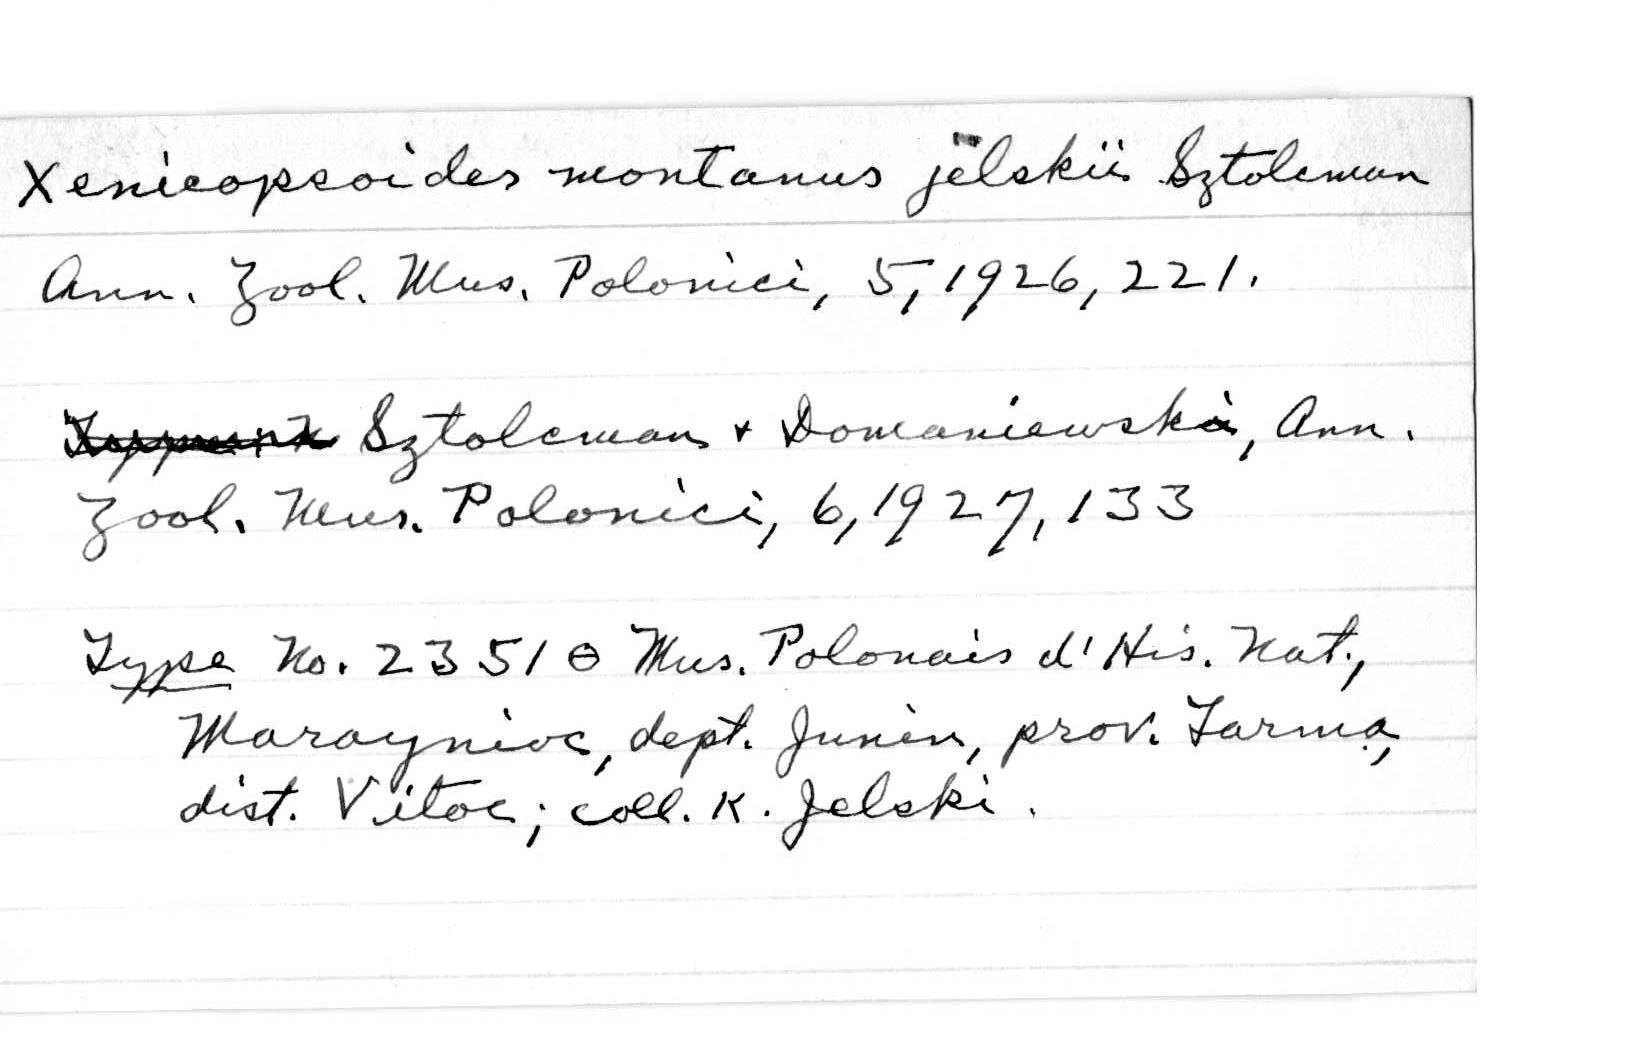 Xenicopsoides montanus jelskii Sztolcman
Ann. Zool. Mus. Polonici, 5, 1926, 221.
Sztolcman + Domaniewski, Ann.
Zool. Mus. Polonici, 6, 1927, 133
Type No. 2351 ⊖ Mus. Polonais d' His. Nat.,
Maraynioc, dept. Junin, prov. Tarma,
dist. Vitoc; coll. K. Jelski.